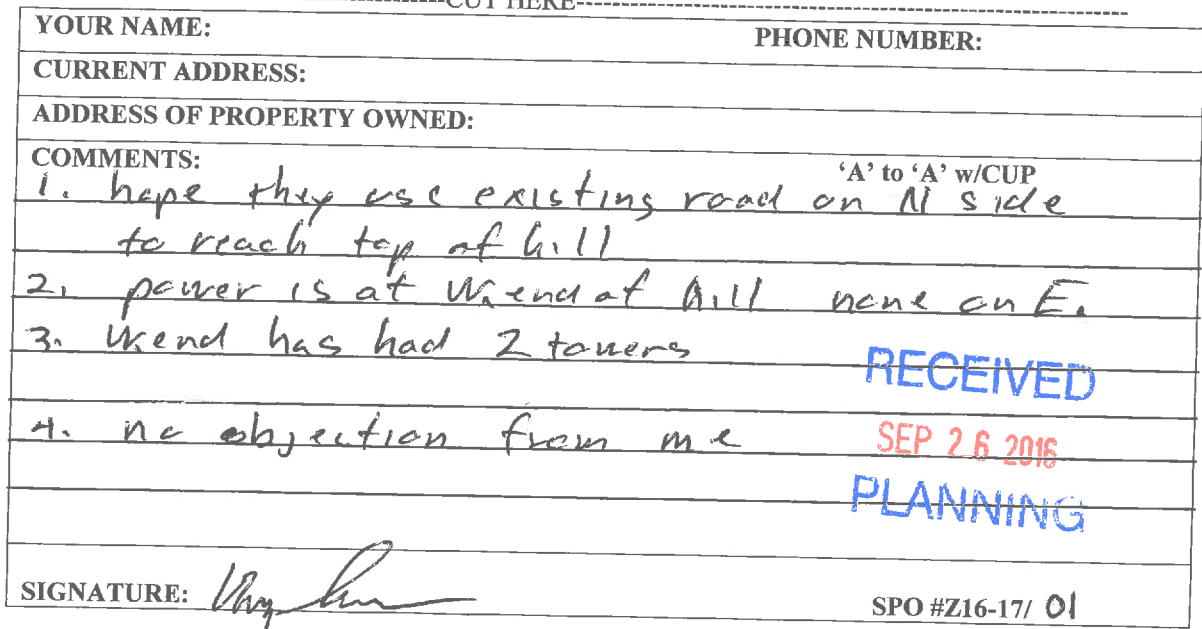 CUT HERE
YOUR NAME: PHONE NUMBER:
CURRENT ADDRESS:
ADDRESS OF PROPERTY OWNED:
COMMENTS: 'A' to 'A' w/CUP
1. hope they use existing road on N side
to reach top of hill
2. power is at W. end of hill none on E.
3. W. end has had 2 towers
RECEIVED
4. no objection from me
SEP 26 2016
PLANNING
SIGNATURE:
SPO #Z16-17/ 01